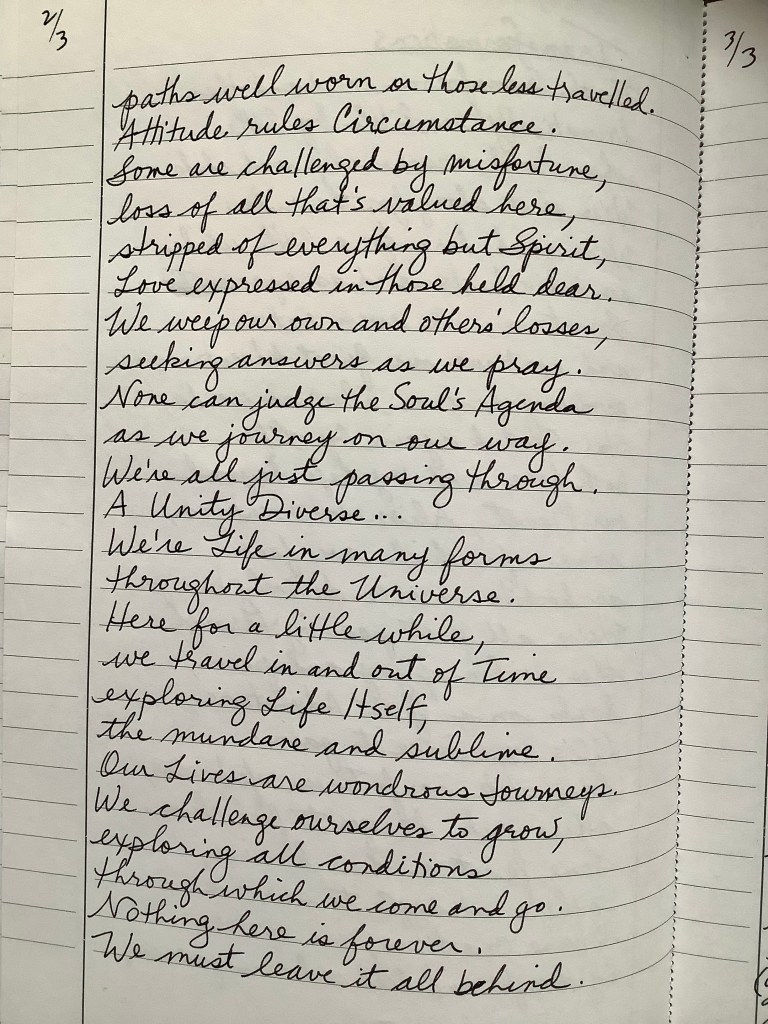 2/3
3/3
paths well worn or those less travelled.
Attitude rules Circumstance.
Some are challenged by misfortune,
loss of all that's valued here,
stripped of everything but Spirit,
Love expressed in those held dear.
We weep our own and others' losses,
seeking answers as we pray.
None can judge the Soul's Agenda
as we journey on our way.
We're all just passing through.
A Unity Diverse...
We're Life in many forms
throughout the Universe.
Here for a little while,
we travel in and out of Time
exploring Life Itself,
the mundane and sublime.
Our Lives are wondrous Journeys.
We challenge ourselves to grow,
exploring all conditions
through which we come and go.
Nothing here is forever.
We must leave it all behind.